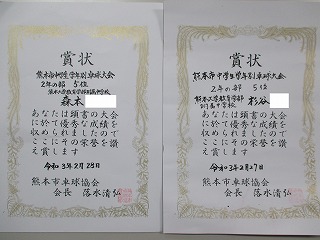 賞状
熊本市中学生学年別卓球大会
2年の部 5位
熊本大学教育学部附属中学校
森本
あなたは頭書の大会
に於て優秀な成績を
収められその栄誉を讃
え賞します
令和3年2月28日
熊本市卓球協会
会長 落水清弘
賞状
熊本市中学生学年別卓球大会
2年の部 5位
熊本大学教育学部
附属中学校
杉谷
あなたは頭書の大会
に於て優秀な成績を
収められその栄誉を讃
え賞します
令和3年2月27日
熊本市卓球協会
会長 落水清弘